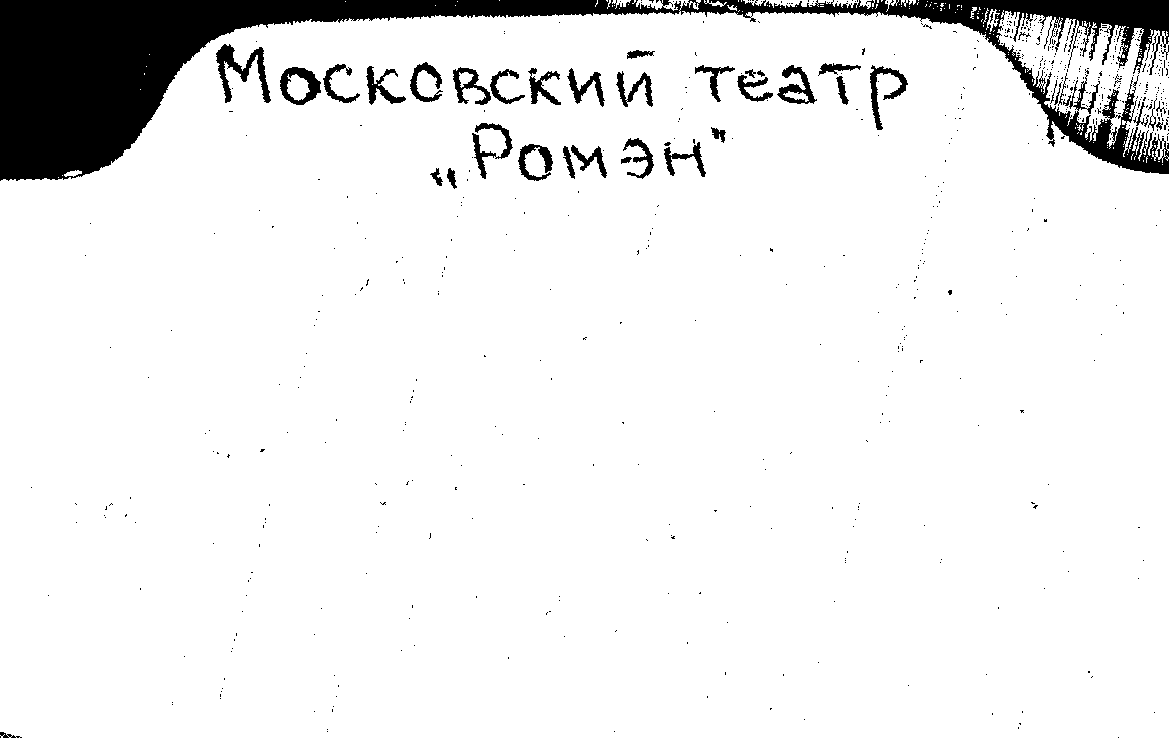 Московский театр
„Ромэн"